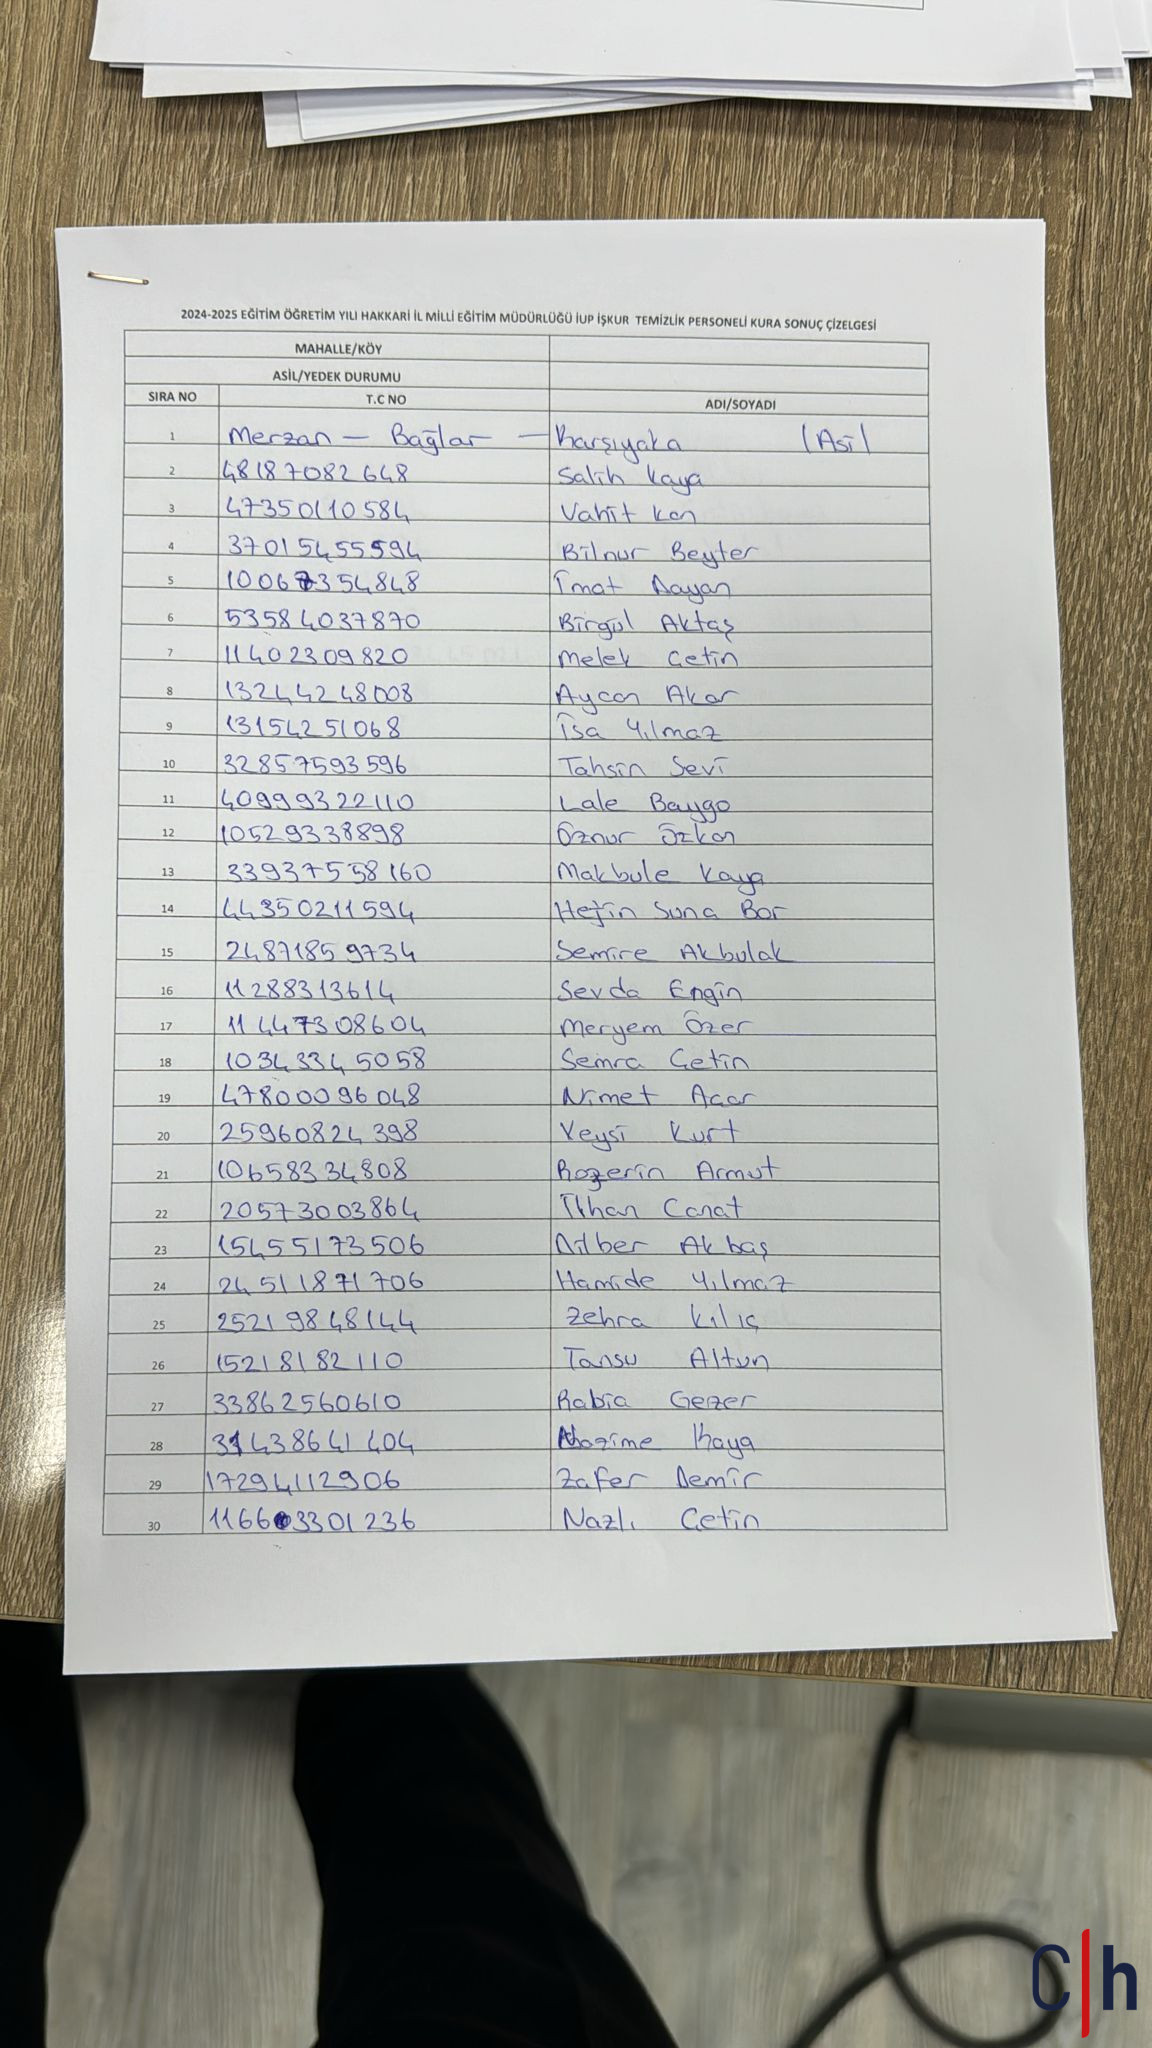 2024-2025 EĞİTİM ÖĞRETİM YILI HAKKARİ İL MİLLİ EĞİTİM MÜDÜRLÜĞÜ İUP İŞKUR TEMİZLİK PERSONELİ KURA SONUÇ ÇİZELGESİ
MAHALLE/KÖY
ASİL/YEDEK DURUMU
SIRA NO T.C NO ADI/SOYADI
1 Merzan - Bağlar - Karşıyaka (Asil
2 48187082648 Salih Kaya
3 47350110584 Vahit Kan
4 37015455594 Bilnur Beyter
5 10067354848 İmat Dayan
6 53584037870 Birgül Aktaş
7 11402309820 Melek Çetin
8 13244248008 Aycan Akar
9 13154251068 İsa Yılmaz
10 32857593596 Tahsin Sevi
11 40999322110 Lale Baygo
12 10529338898 Öznur Özkan
13 33937558160 Makbule Kaya
14 44350211594 Hejin Suna Bor
15 24871859734 Semire Akbulak
16 11288313614 Sevda Engin
17 11447308604 Meryem Özer
18 10343345058 Semra Çetin
19 47800096048 Nimet Acar
20 25960824398 Veysi Kurt
21 10658334808 Rozerin Armut
22 20573003864 İlhan Canat
23 15455173506 Dilber Akbaş
24 24511871706 Hamide Yılmaz
25 25219848144 Zehra Kılıç
26 15218182110 Tansu Altun
27 33862560610 Rabia Gezer
28 31438641404 Nazime Kaya
29 17294112906 Zafer Demir
30 116603301236 Nazlı Çetin
C|h